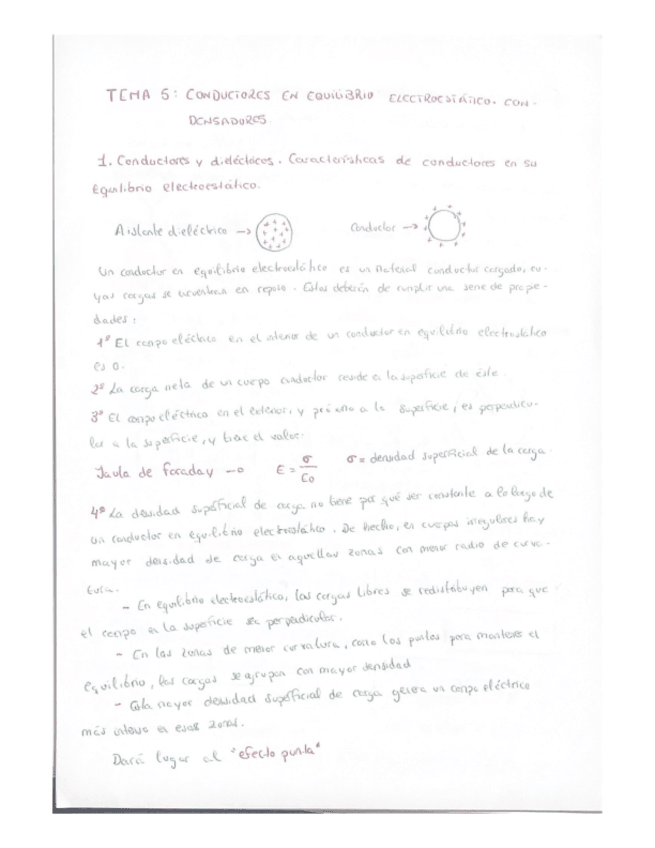 TEMA 5: CONDUCTORES EN EQUILIBRIO ELECTROESTÁTICO. CON-
DENSADORES.
1. Conductores y dieléctricos. Características de conductores en su
Equilibrio electroestático.
Aislante dieléctrico → Conductor →
Un conductor en equilibrio electroestático es un material conductor cargado, cu-
yas cargas se encuentran en reposo. Estos deberán de cumplir una serie de propie-
dades:
1º El campo eléctrico en el interior de un conductor en equilibrio electrostático
es 0.
2º La carga neta de un cuerpo conductor reside en la superficie de éste.
3º El campo eléctrico en el exterior, y próximo a la superficie, es perpendicu-
lar a la superficie, y tiene el valor:
Jaula de faraday → E = σ/Ɛo σ = densidad superficial de la carga.
4º La densidad superficial de carga no tiene por qué ser constante a lo largo de
un conductor en equilibrio electrostático. De hecho, en cuerpos irregulares hay
mayor densidad de carga en aquellas zonas con menor radio de curva-
tura.
- En equilibrio electroestático, las cargas libres se redistribuyen para que
el campo en la superficie sea perpendicular.
- En las zonas de menor curvatura, como las puntas para mantener el
equilibrio, las cargas se agrupan con mayor densidad
- Esta mayor densidad superficial de carga genera un campo eléctrico
más intenso en esas zonas.
Dará lugar al "efecto punta"